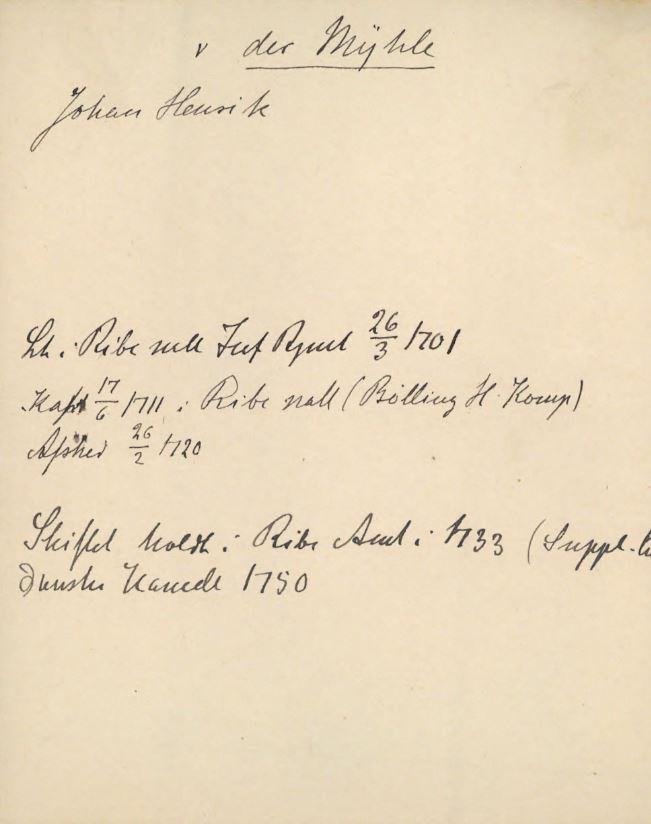 v der Mÿhle
Johan Henrik
Lt. i Ribe natl Inf Rgmt 26/3 1701
Kapt 17/6 1711 i Ribe natl (Bölling H. Komp)
Afsked 26/2 1720
Skiftet holdt i Ribe Amt i 1733 (Suppl.
Danske Kancelli 1750